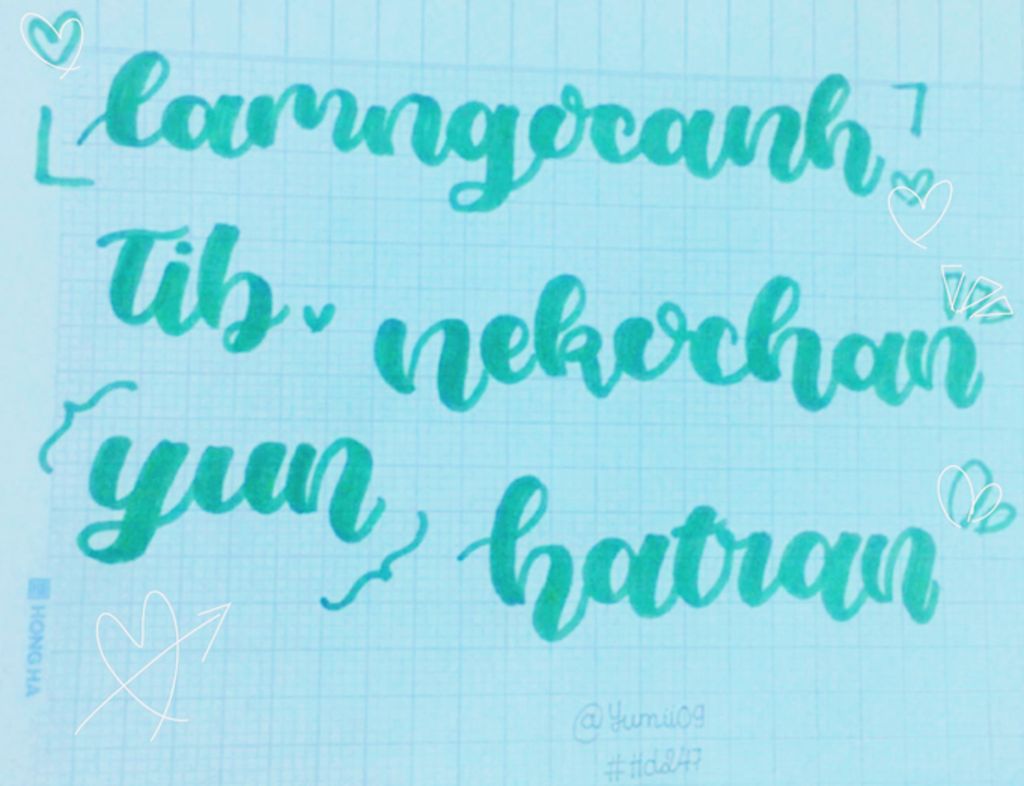 lamngocanh
Tib
nekochan
yun
hatran
HONG HA
@Yumii09
#Hd247